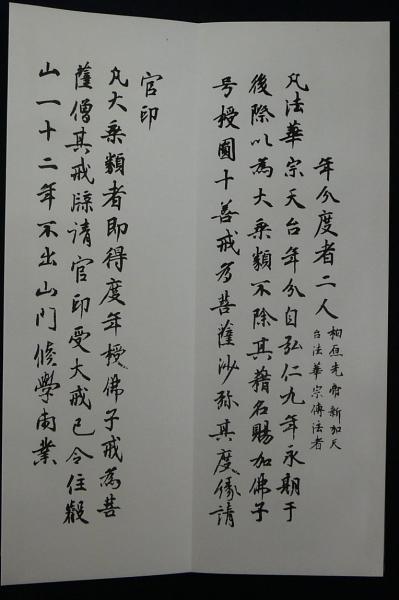 年分度者二人 柏原先帝新加天
台法華宗傳法者
凡法華宗天台年分自弘仁九年永期于
後際以為大乘類不除其籍名賜加佛子
号授圓十善戒為菩薩沙弥其度縁請
官印
凡大乘類者即得度年授佛子戒為菩
薩僧其戒牒請官印受大戒已令住叡
山一十二年不出山門修學兩業